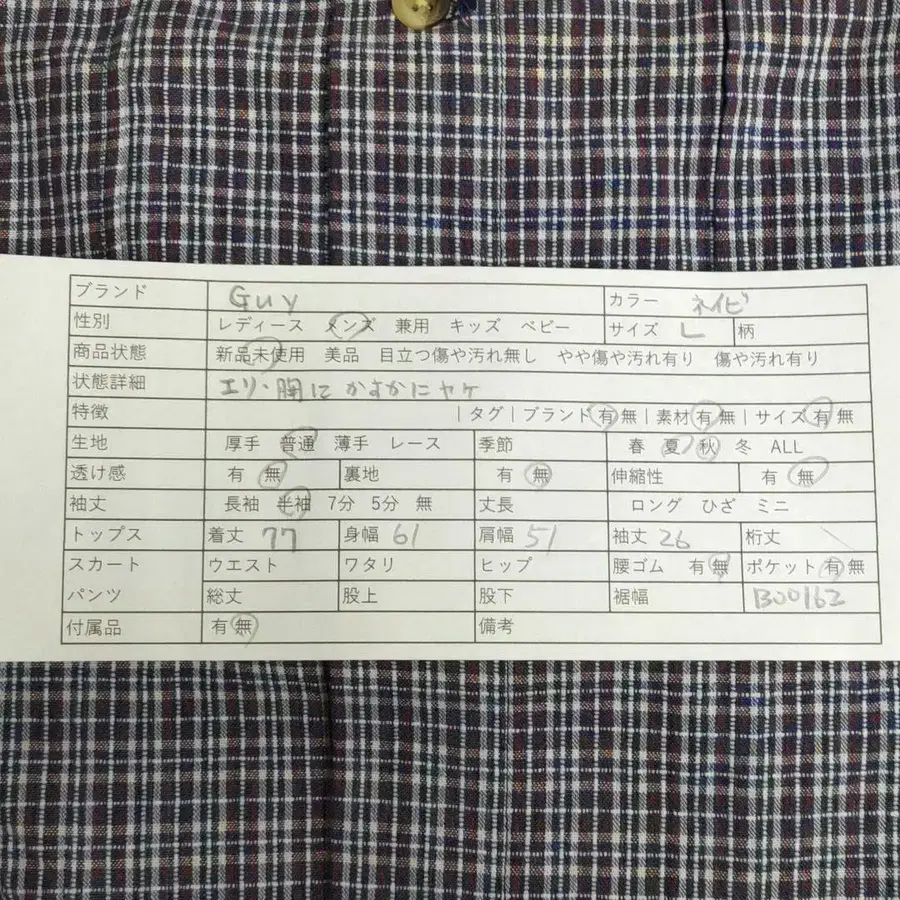 ブランド Guy カラー ネイビ
性別 レディース メンズ 兼用 キッズ ベビー サイズ L 柄
商品状態 新品未使用 美品 目立つ傷や汚れ無し やや傷や汚れ有り 傷や汚れ有り
状態詳細 エリ・胸に かすかに ヤケ
特徴 |タグ|ブランド 有 無|素材 有 無|サイズ 有 無
生地 厚手 普通 薄手 レース 季節 春 夏 秋 冬 ALL
透け感 有 無 裏地 有 無 伸縮性 有 無
袖丈 長袖 半袖 7分 5分 無 丈長 ロング ひざ ミニ
トップス 着丈 77 身幅 61 肩幅 51 袖丈 26 裄丈
スカート ウエスト ワタリ ヒップ 腰ゴム 有 無 ポケット 有 無
パンツ 総丈 股上 股下 裾幅 B00162
付属品 有 無 備考